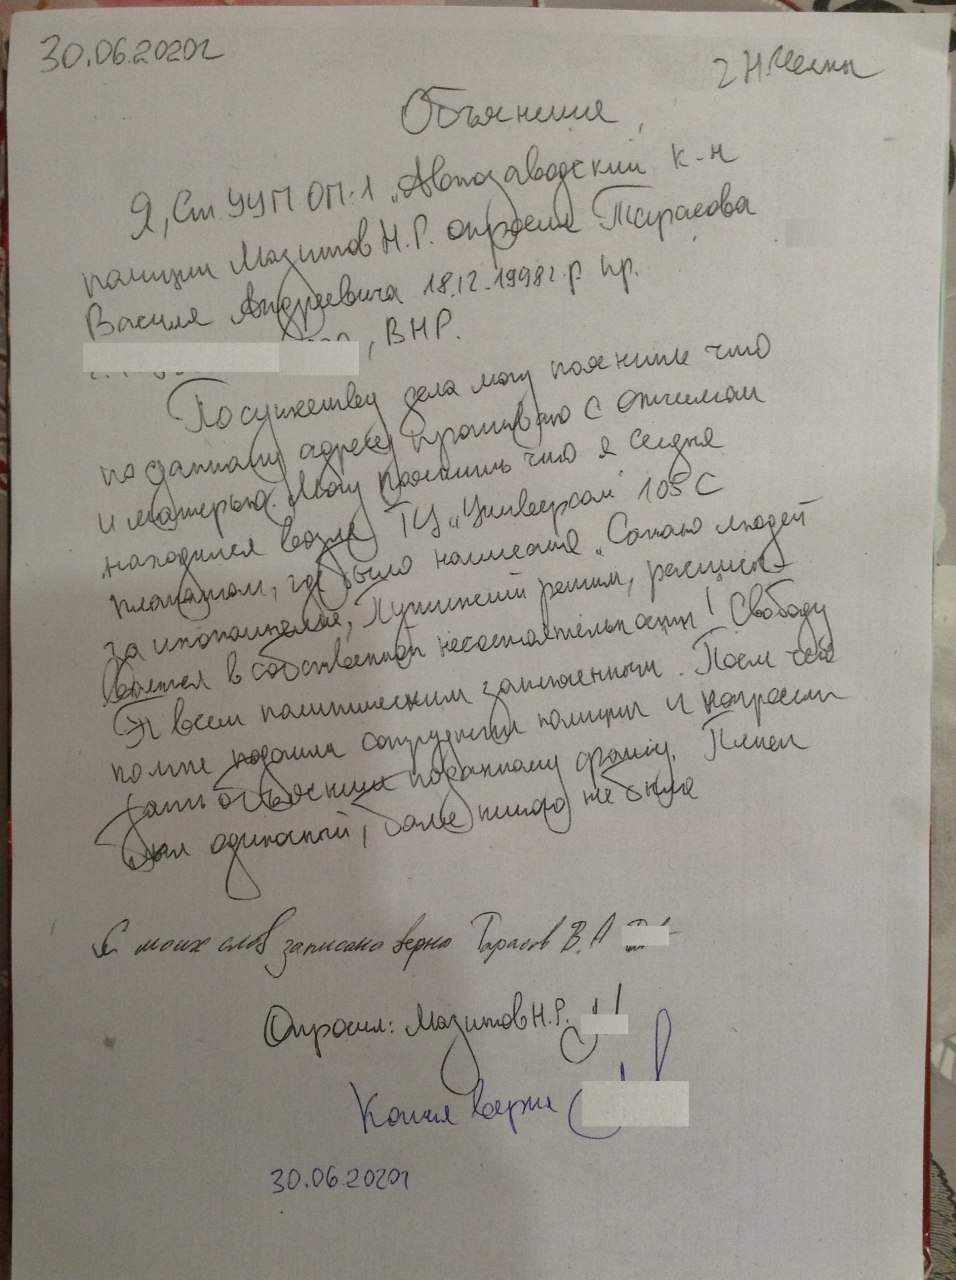 30.06.2020г
г Н.Челны
Объяснение
Я, Ст УУП ОП-1 "Автозаводский" к-н
полиции Мазитов Н.Р. опросил Тарасова
Василя Андреевича 18.12.1998г.р пр.
, ВНР.
По существу дела могу пояснить что
по данному адресу проживаю с отчимом
и матерью. Могу пояснить что я сегодня
находился возле ТЦ "Универсам" 105 С
плакатом, где было написано "Сажаю людей
за инакомыслие, Путинский режим,
в собственной несостоятельности! Свободу
всем политическим заключенным. После чего
ко мне подошли сотрудники полиции и попросили
дать объяснение по данному факту. Пикет
был одиночный, более никого не было
С моих слов записано верно Тарасов В.А
Опросил: Мазитов Н.Р.
Копия верна
30.06.2020г